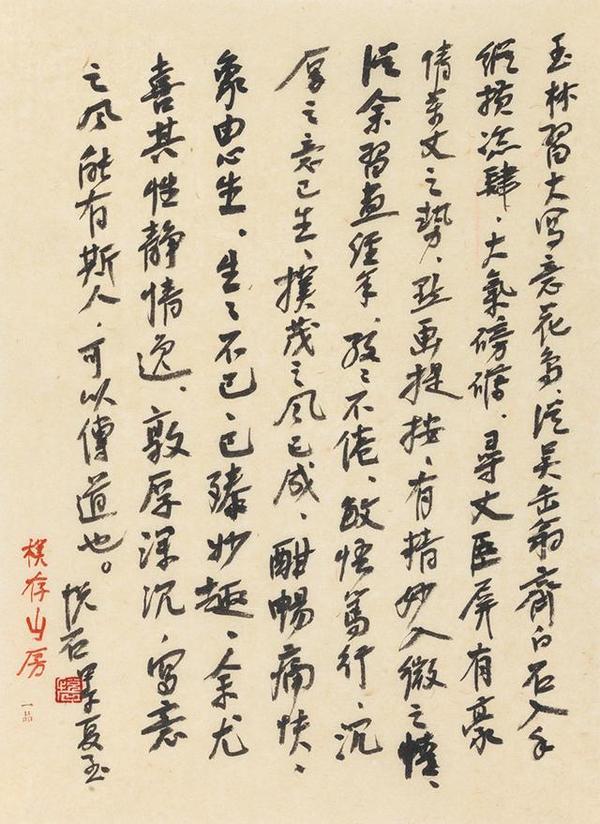 玉林習大写意花鳥、從吴缶翁齊白石入手
縱横恣肆、大氣磅礴、尋丈巨屏有豪
情萬丈之勢、點画提按、有精妙入微之情、
從余習画經年、孜〻不倦、敏悟篤行、沉
厚之意已生、撲茂之風已成、酣暢痛快、
象由心生、生〻不已、已臻妙趣、余尤
喜其性靜情逸、敦厚深沉、写意
之風能有斯人、可以傳道也。
悦石 夏玉
樸存山房
一品